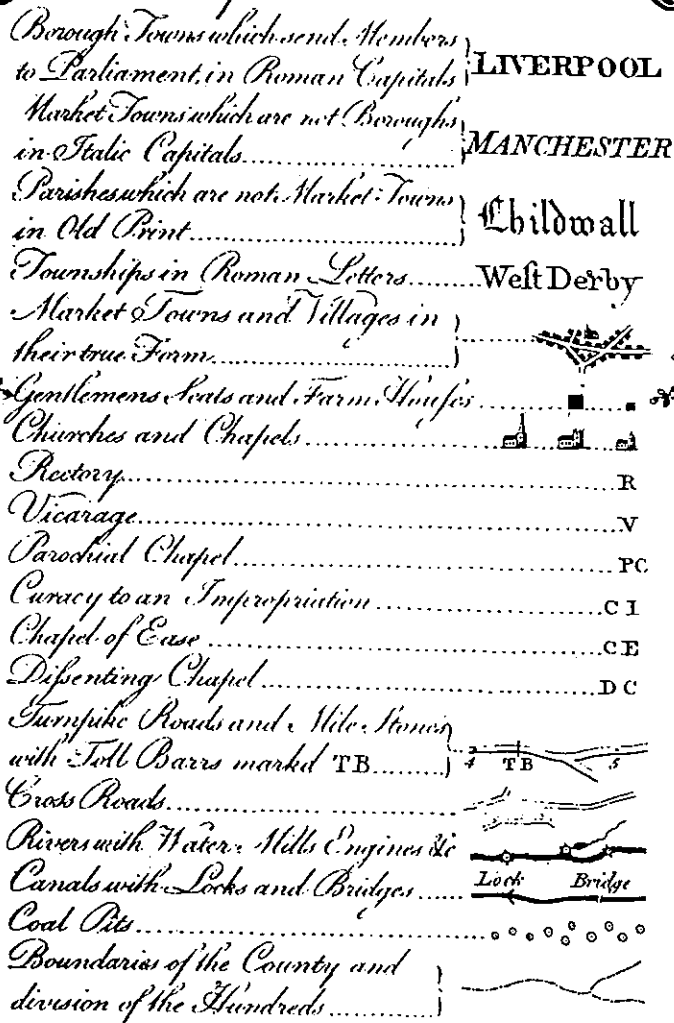 Borough Towns which send Members
to Parliament in Roman Capitals LIVERPOOL
Market Towns which are not Boroughs
in Italic Capitals MANCHESTER
Parishes which are not Market Towns
in Old Print Childwall
Townships in Roman Letters Weſt Derby
Market Towns and Villages in
their true Form
Gentlemens Seats and Farm Houſes
Churches and Chapels
Rectory R
Vicarage V
Parochial Chapel PC
Curacy to an Impropriation C I
Chapel of Ease C E
Diſsenting Chapel D C
Turnpike Roads and Mile Stones
with Toll Barrs markd TB 4 T B 5
Cross Roads
Rivers with Water Mills Engines &c
Canals with Locks and Bridges Lock Bridge
Coal Pits
Boundaries of the County and
division of the Hundreds